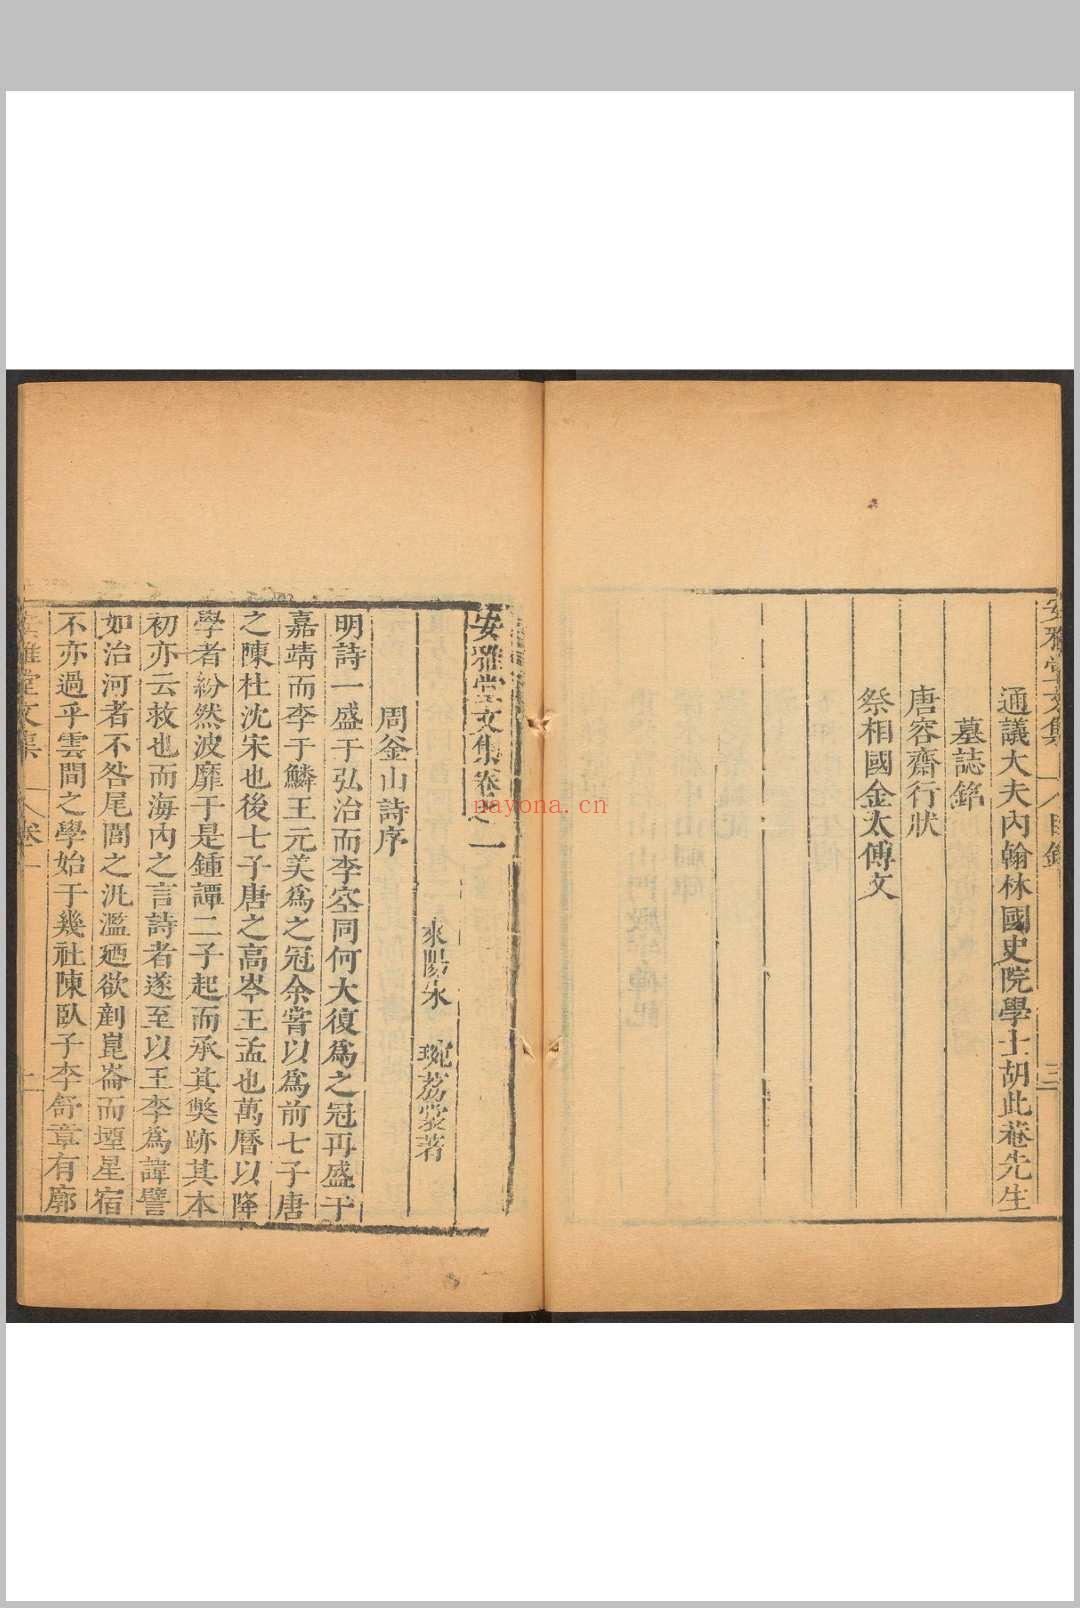 安雅堂文集
目錄
三
通議大夫內翰林國史院學士胡此菴先生
墓誌銘
唐容齋行狀
祭相國金太傅文
安雅堂文集卷之一
萊陽宋 琬荔裳著
周釜山詩序
明詩一盛于弘治而李空同何大復爲之冠再盛于
嘉靖而李于鱗王元美爲之冠余嘗以爲前七子唐
之陳杜沈宋也後七子唐之高岑王孟也萬曆以降
學者紛然波靡于是鍾譚二子起而承其獘跡其本
初亦云救也而海內之言詩者遂至以王李爲諱譬
如治河者不咎尾閭之汎濫廼欲剷崑崙而堙星宿
不亦過乎雲間之學始于幾社陳臥子李舒章有廓
安雅堂文集
卷一
一
nayona.cn